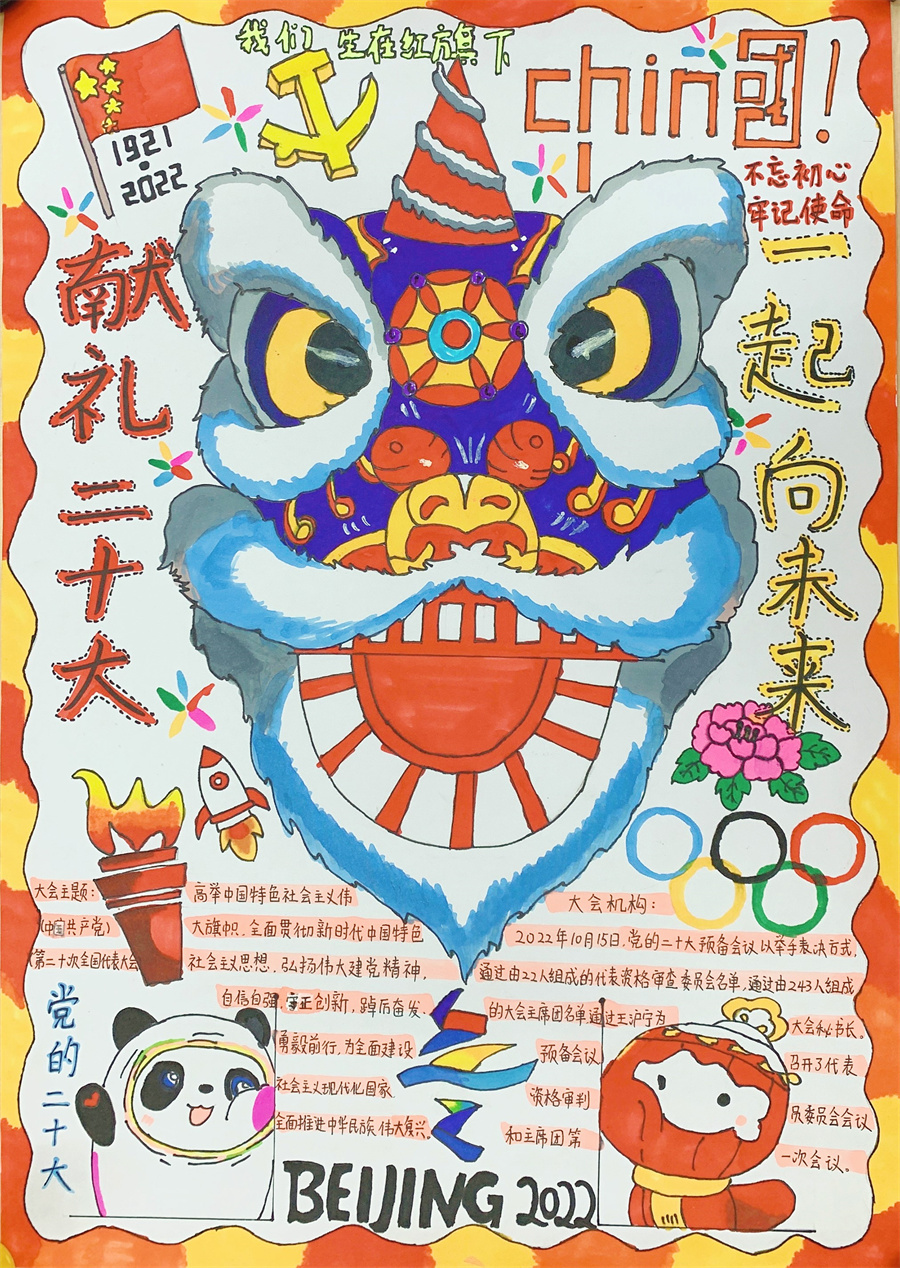 我们生在红旗下
chin國!
1921
2022
不忘初心
牢记使命
献礼二十大
一起向未来
大会主题:
(中国共产党)
(第二十次全国代表大会
高举中国特色社会主义伟
大旗帜.全面贯彻新时代中国特色
社会主义思想，弘扬伟大建党精神，
自信自强,守正创新，踔厉奋发
勇毅前行,为全面建设
社会主义现代化国家
全面推进中华民族伟大复兴。
大会机构:
2022年10月15日,党的二十大预备会议以举手表决方式,
通过由22人组成的代表资格审查委员会名单,通过由243人组成
的大会主席团名单通过王沪宁为
大会秘书长。
预备会议
召开了代表
资格审判
员委员会会议
和主席团第
一次会议。
党的二十大
BEIJING 2022